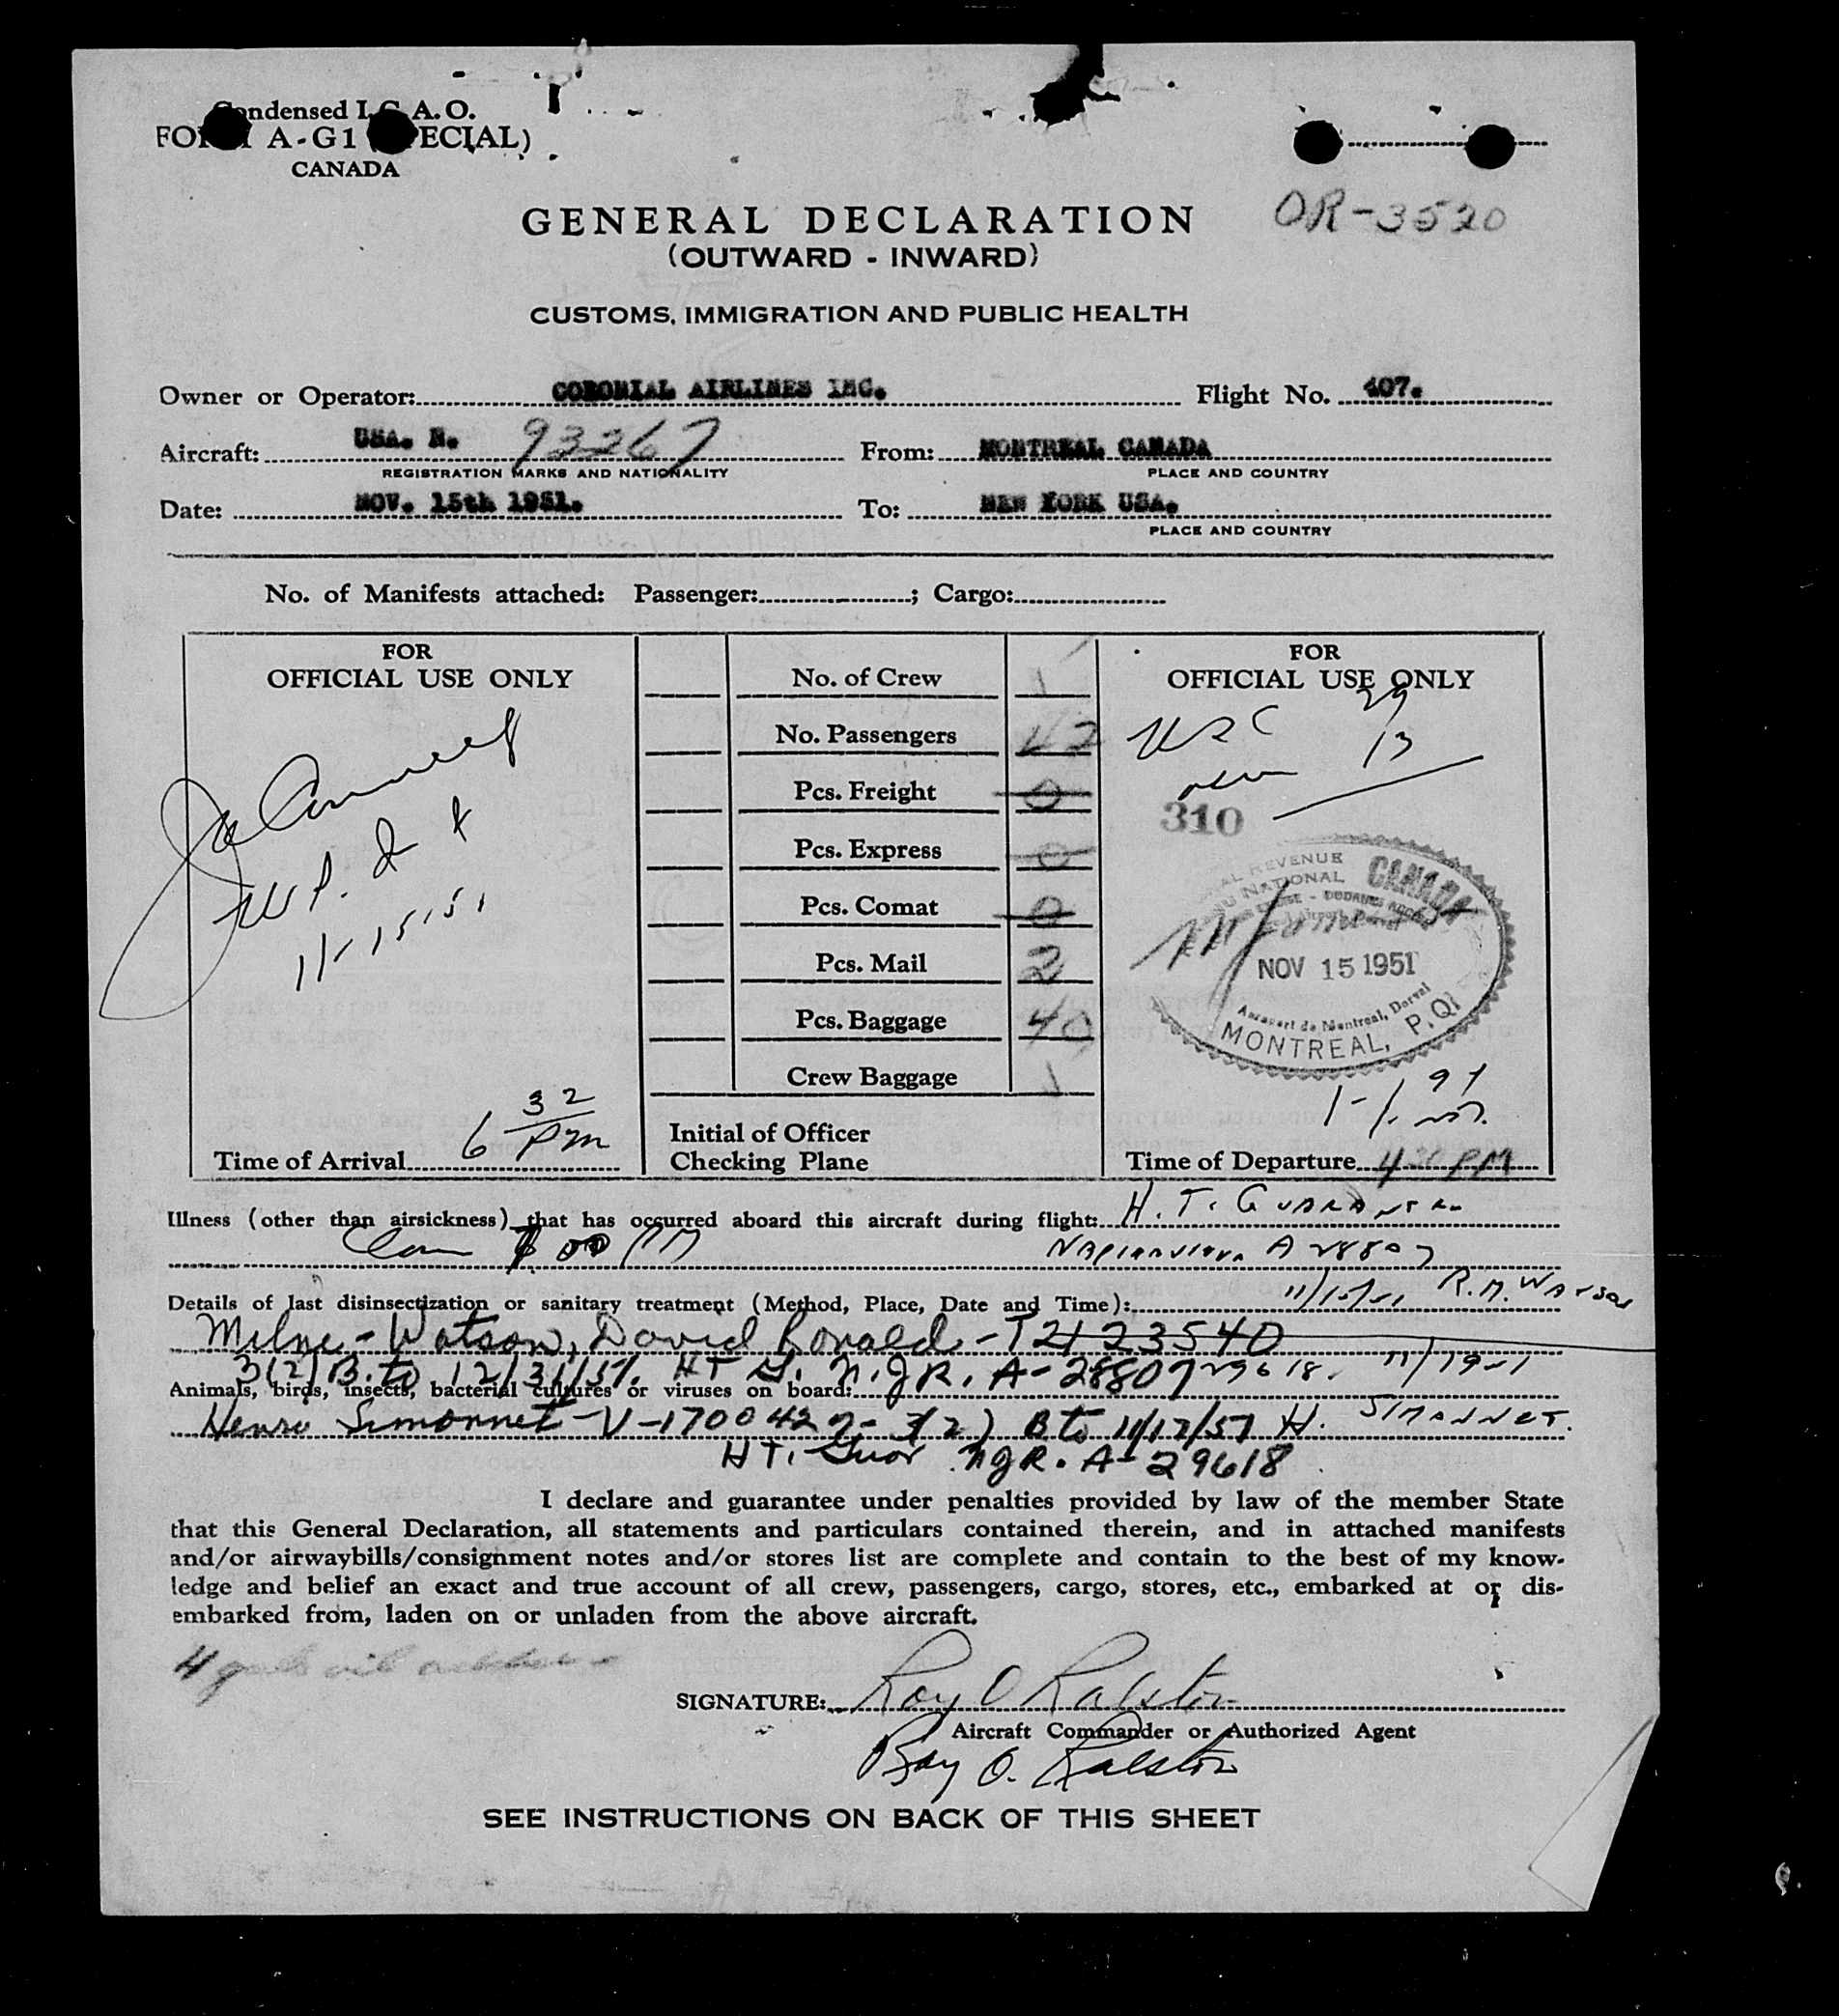 Condensed I.C.A.O.
FORM A-G1 (SPECIAL)
CANADA
OR-3520
GENERAL DECLARATION
(OUTWARD - INWARD)
CUSTOMS, IMMIGRATION AND PUBLIC HEALTH
Owner or Operator: COLONIAL AIRLINES INC. Flight No. 407.
Aircraft: USA. N. 93267 From: MONTREAL CANADA
REGISTRATION MARKS AND NATIONALITY PLACE AND COUNTRY
Date: NOV. 15th 1951. To: NEW YORK USA.
PLACE AND COUNTRY
No. of Manifests attached: Passenger: ; Cargo:
FOR
OFFICIAL USE ONLY
11-15-51
Time of Arrival 6 32 PM
No. of Crew 1
No. Passengers 42
Pcs. Freight 0
Pcs. Express 0
Pcs. Comat 0
Pcs. Mail 2
Pcs. Baggage 40
Crew Baggage 1
Initial of Officer
Checking Plane
FOR
OFFICIAL USE ONLY
USC 29
13
310
REVENUE
NATIONAL
CANADA
NOV 15 1951
Aeroport de Montreal, Dorval
MONTREAL, P.Q.
Time of Departure 4 30 PM
Illness (other than airsickness) that has occurred aboard this aircraft during flight: H. T.
00 PM A 28807
Details of last disinsectization or sanitary treatment (Method, Place, Date and Time): R.M. WATSON
Milne-Watson, David Ronald - T2123540
3(2) B. to 12/31/51. HT G. N.J.R. A-28807 29618.
Animals, birds, insects, bacterial cultures or viruses on board:
Henri Simonnet - V-1700427- 3(2) B to 11/17/51 H. SIMONNET.
HT. Guar NJR. A-29618
I declare and guarantee under penalties provided by law of the member State
that this General Declaration, all statements and particulars contained therein, and in attached manifests
and/or airwaybills/consignment notes and/or stores list are complete and contain to the best of my know-
ledge and belief an exact and true account of all crew, passengers, cargo, stores, etc., embarked at or dis-
embarked from, laden on or unladen from the above aircraft.
4 gals oil added
SIGNATURE: Roy O Ralston
Aircraft Commander or Authorized Agent
Roy O. Ralston
SEE INSTRUCTIONS ON BACK OF THIS SHEET